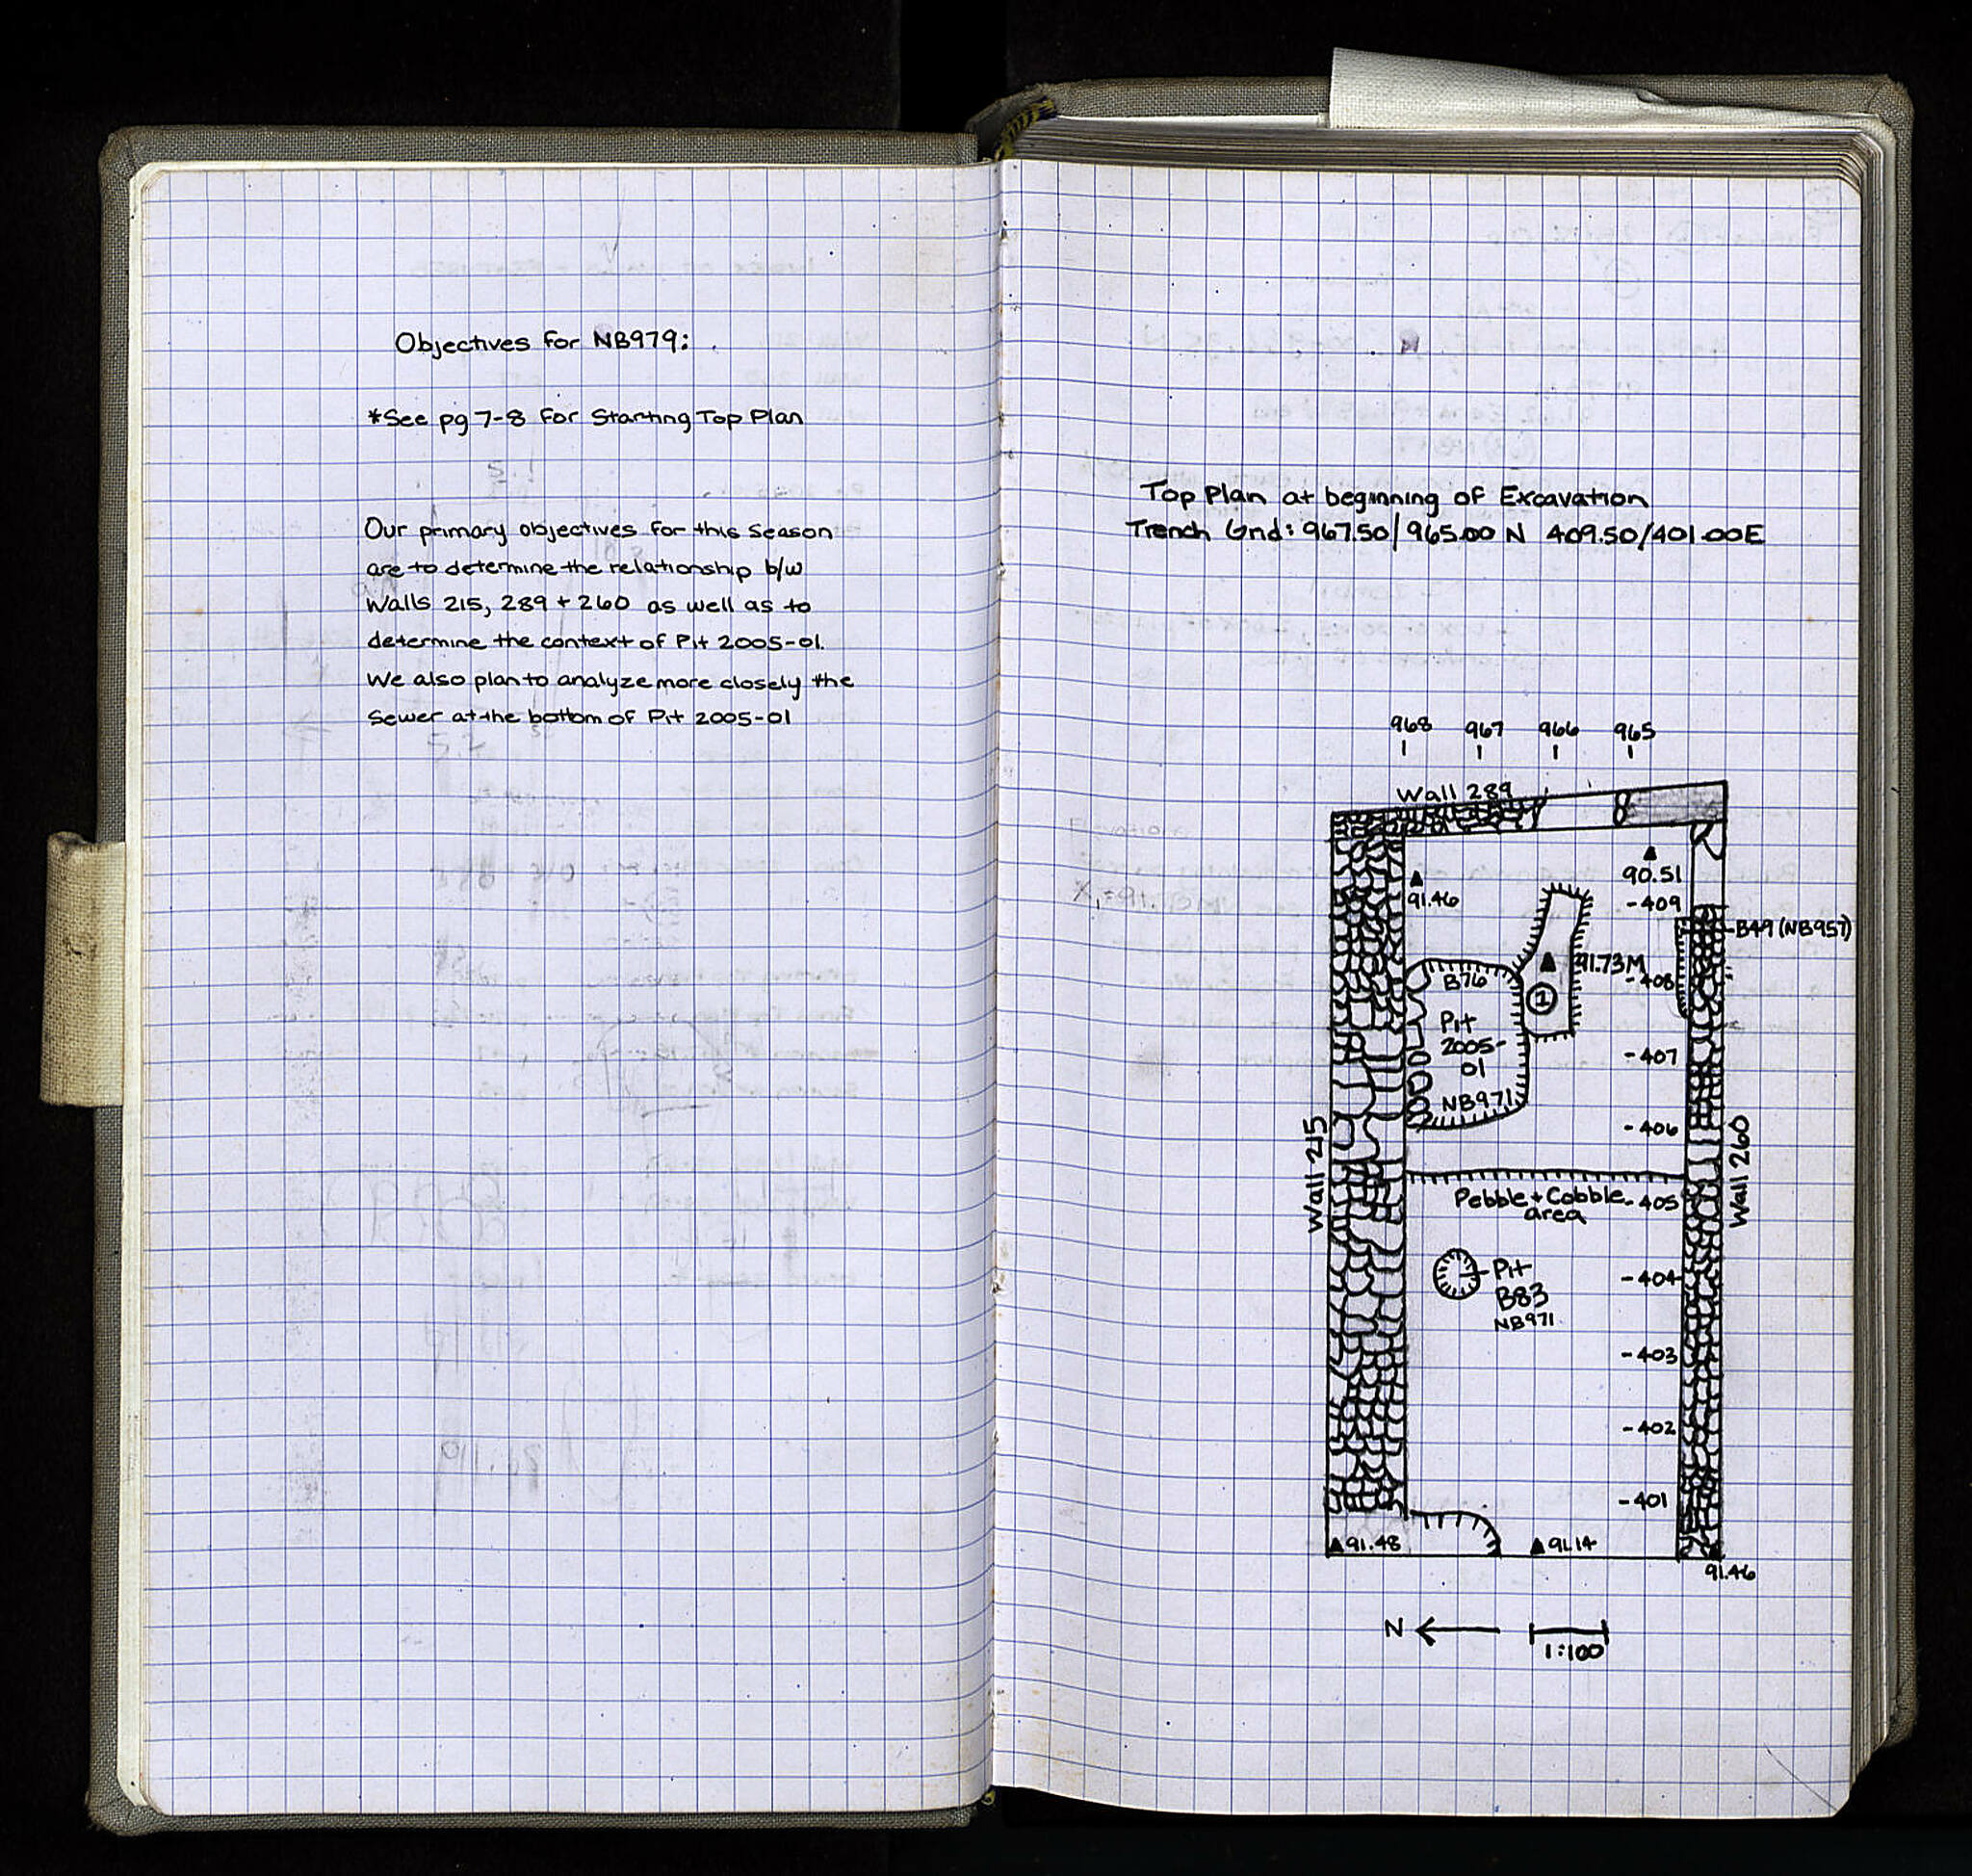 Objectives for NB979:
*See pg 7-8 for Starting Top Plan
Our primary objectives for this season
are to determine the relationship b/w
Walls 215, 289 + 260 as well as to
determine the context of Pit 2005-01.
We also plan to analyze more closely the
sewer at the bottom of Pit 2005-01
Top Plan at beginning of Excavation
Trench Grid: 967.50/965.00 N 409.50/401.00E
968 967 966 965
Wall 289
90.51
91.46
-409
B49 (NB957)
91.73M
-408
B76
1
Pit
2005-
01
NB971
-407
-406
Wall 215
Wall 260
Pebble + Cobble
area
-405
Pit
B83
NB971
-404
-403
-402
-401
91.48
91.14
91.46
N
1:100